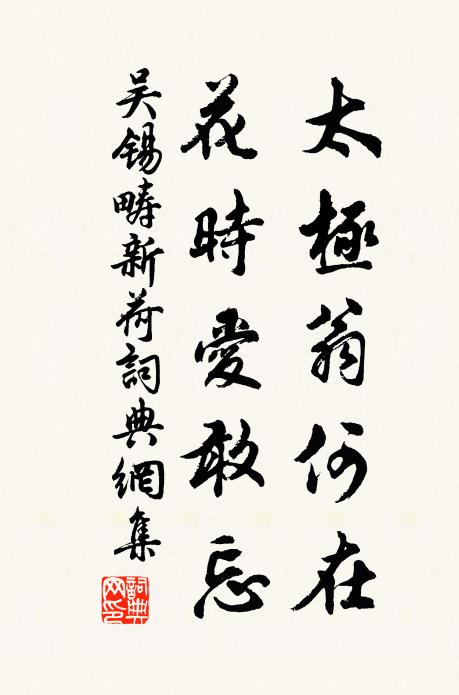 太極翁何在
花時愛敢忘
吴錫疇新荷詞典網集
詞典網印